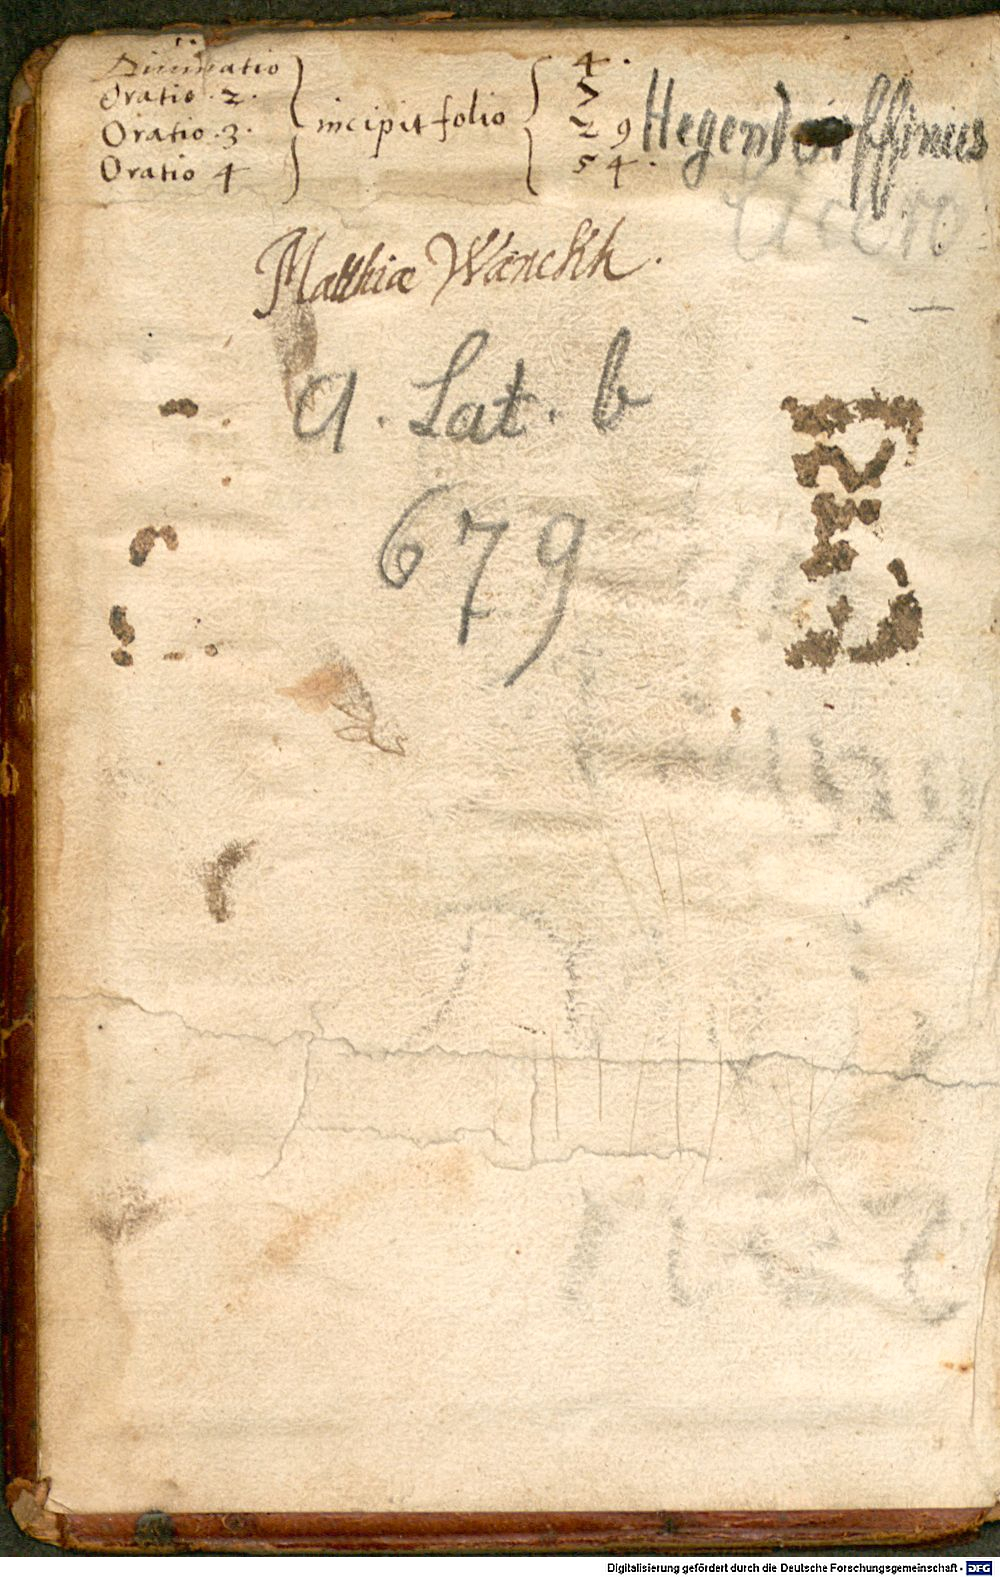 Divinatio
Oratio . 2 .
Oratio . 3 .
Oratio 4
incipit folio
4 .
7
29
54 .
Hegendorffinus
Cicero
Matthiæ Wænckh .
A . Lat . b
679
Digitalisierung gefördert durch die Deutsche Forschungsgemeinschaft - DFG